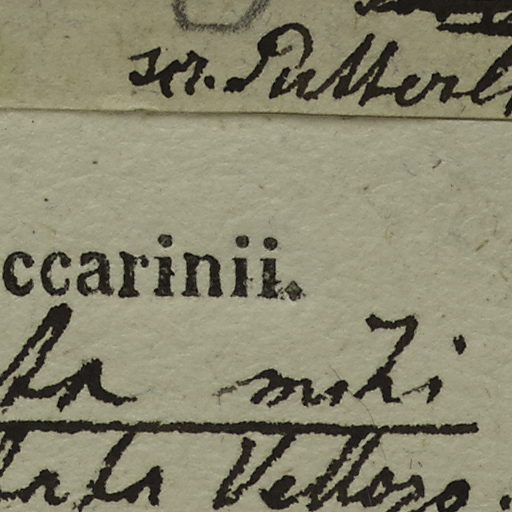 scr. Putterl
ccarinii.
ta mihi
lata Vellozo.